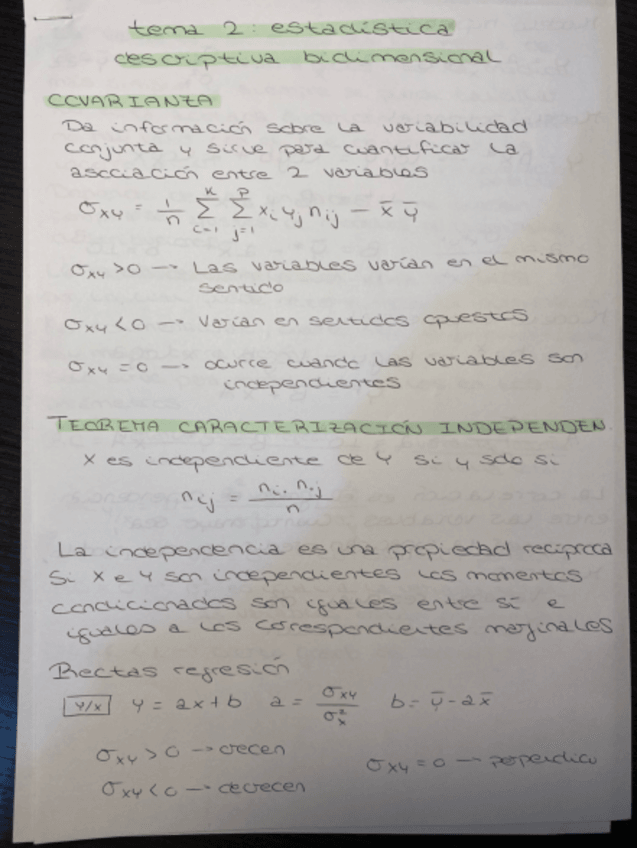 tema 2: estadística
descriptiva bidimensional
COVARIANZA
Da información sobre la variabilidad
conjunta y sirve para cuantificar la
asociación entre 2 variables
σxy = 1/n Σ(i=1, k) Σ(j=1, p) xi yj nij − x̄ ȳ
σxy > 0 → Las variables varían en el mismo
sentido
σxy < 0 → Varían en sentidos opuestos
σxy = 0 → ocurre cuando las variables son
independientes
TEOREMA CARACTERIZACIÓN INDEPENDEN.
X es independiente de Y si y solo si
nij = ni. n.j / n
La independencia es una propiedad recíproca
Si X e Y son independientes los momentos
condicionados son iguales entre sí e
iguales a los correspondientes marginales
Rectas regresión
Y/X y = ax+b a = σxy / σ²x b = ȳ - ax̄
σxy > 0 → crecen
σxy = 0 → perpendicu
σxy < 0 → decrecen